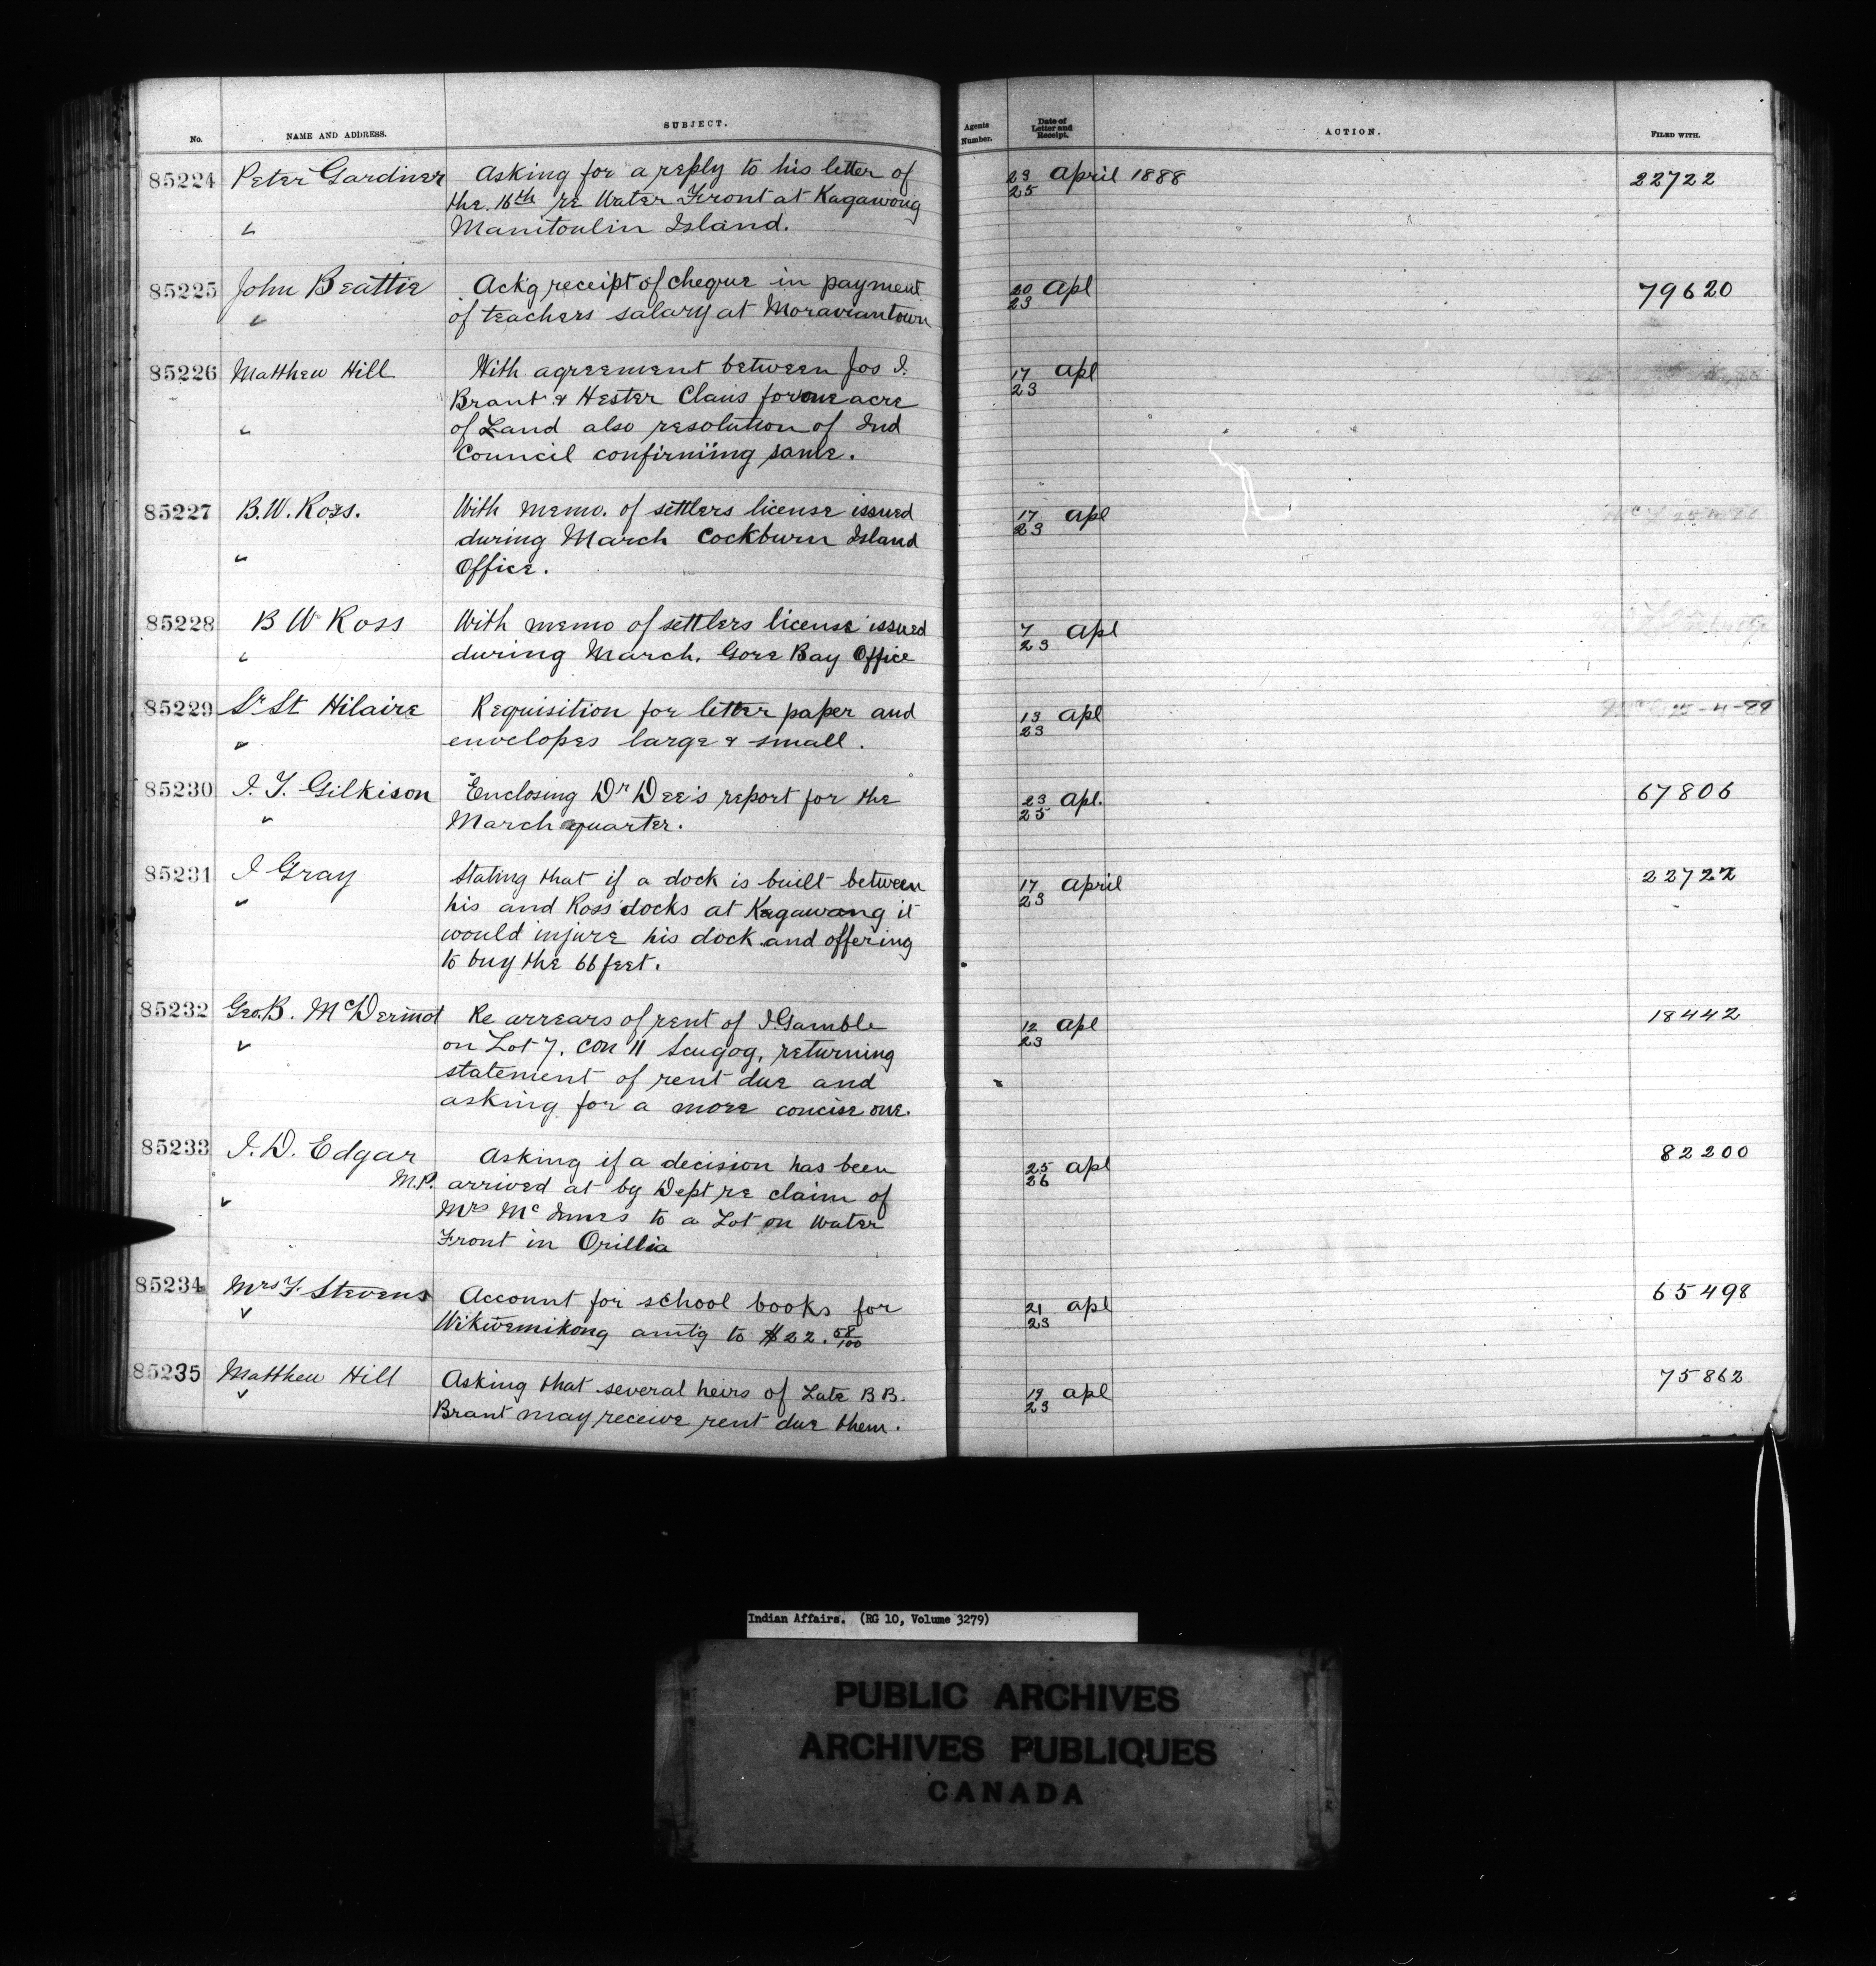 No. NAME AND ADDRESS. SUBJECT. Agents Number. Date of Letter and Receipt. ACTION. FILED WITH.
85224 Peter Gardiner Asking for a reply to his letter of 23 April 1888 22722
the 16th re Water Front at Kagawong 25
" Manitoulin Island.
85225 John Beattie Ackg receipt of cheque in payment 20 Apl 79620
" of teachers salary at Moraviantown 23
85226 Matthew Hill With agreement between Jos I. 17 Apl
Brant & Hester Claus for one acre 23
" of Land also resolution of Ind
Council confirming same.
85227 B.W. Ross. With memo. of settlers license issued 17 Apl
during March Cockburn Island 23
" Office.
85228 B W Ross With memo of settlers license issued 7 Apl
" during March. Gore Bay Office 23
85229 Sr St Hilaire Requisition for letter paper and 13 Apl
" envelopes large & small. 23
85230 I. T. Gilkison Enclosing Dr Dee's report for the 23 Apl. 67806
" March quarter. 25
85231 I Gray Stating that if a dock is built between 17 April 22722
" his and Ross docks at Kagawang it 23
would injure his dock and offering
to buy the 66 feet.
85232 Geo. B. McDermot Re arrears of rent of I Gamble 12 Apl 18442
" on Lot 7. Con 11 Scugog, returning 23
statement of rent due and
asking for a more concise one.
85233 I. D. Edgar Asking if a decision has been 25 Apl 82200
M.P. arrived at by Dept re claim of 26
" Mrs McInnes to a Lot on Water
Front in Orillia
85234 Mrs F. Stevens Account for school books for 21 Apl 65498
" Wikwemikong amtg to $22.68/100 23
85235 Matthew Hill Asking that several heirs of Late B B. 19 Apl 75862
" Brant may receive rent due them. 23
Indian Affairs. (RG 10, Volume 3279)
PUBLIC ARCHIVES
ARCHIVES PUBLIQUES
CANADA